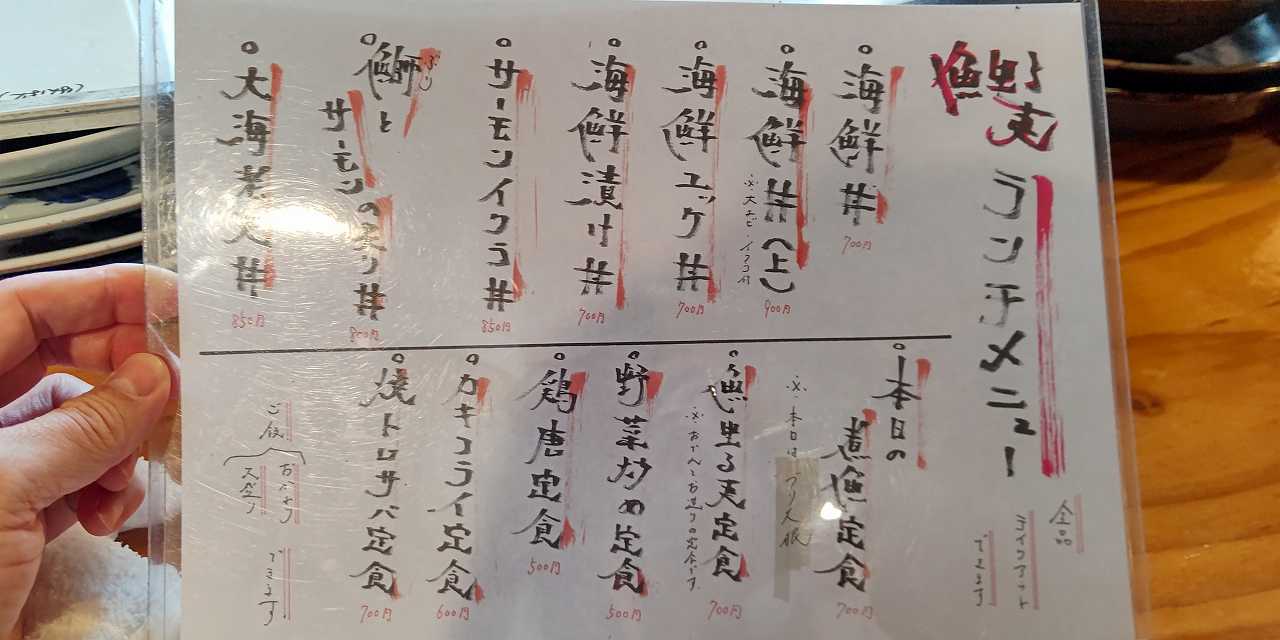 ランチメニュー
全品
テイクアウト
できます
海鮮丼
700円
海鮮丼(上)
※大エビ・イクラ付
900円
海鮮ユッケ丼
700円
海鮮漬け丼
700円
サーモンイクラ丼
850円
鰤と
ぶり
サーモンの炙り丼
800円
大海老天丼
850円
本日の
煮魚定食
※本日はブリ大根
700円
定食
700円
野菜炒め定食
500円
鶏唐定食
500円
カキフライ定食
600円
焼トロサバ定食
700円
ご飯
おかわり
大盛り
できます